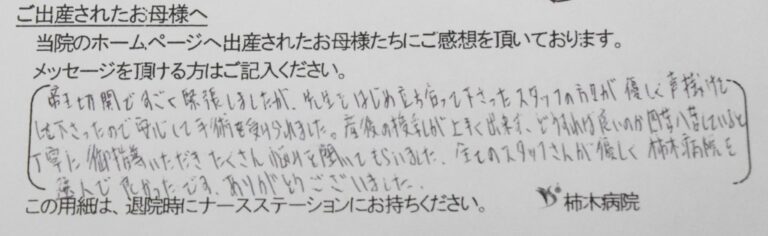 ご出産されたお母様へ
当院のホームページへ出産されたお母様たちにご感想を頂いております。
メッセージを頂ける方はご記入ください。
帝王切開ですごく緊張しましたが、先生をはじめ立ち合って下さったスタッフの方々が優しく声掛けを
して下さったので安心して手術を受けられました。産後の授乳が上手く出来ず、どうすれば良いのか四苦八苦していると
丁寧に御指導いただきたくさん悩みを聞いてもらいました。全てのスタッフさんが優しく柿木病院を
選んで良かったです。ありがとうございました。
この用紙は、退院時にナースステーションにお持ちください。 柿木病院